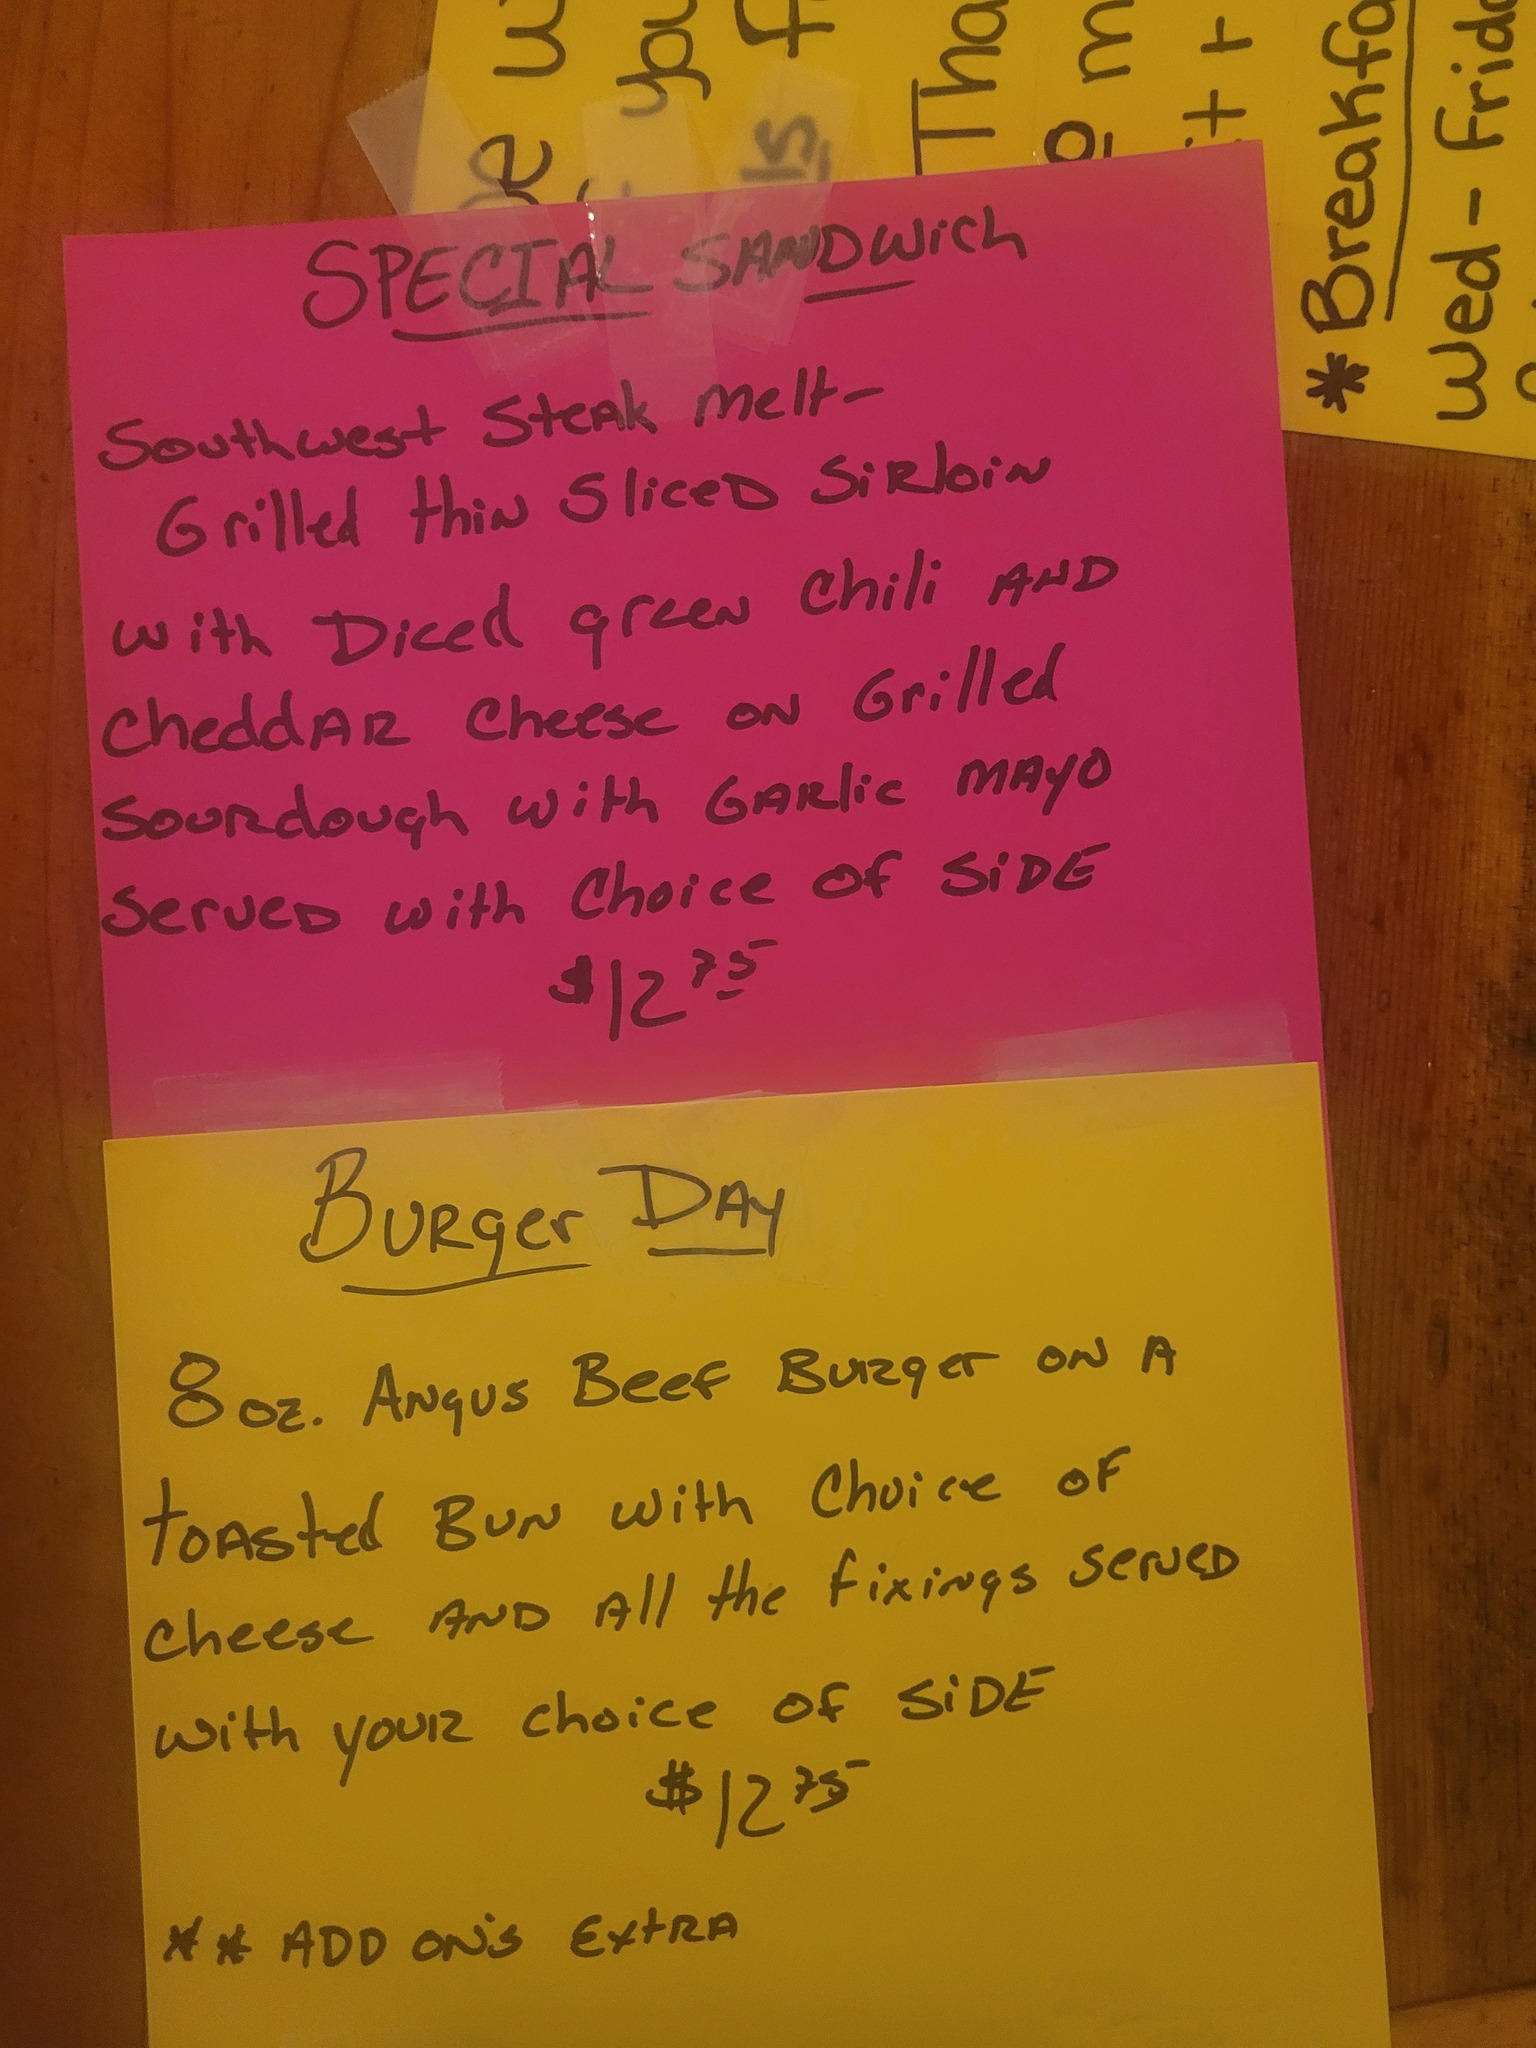 SPECIAL SANDWich
Southwest Steak Melt-
Grilled thin Sliced Sirloin
with Diced green Chili AND
Cheddar Cheese on Grilled
Sourdough with Garlic MAYO
Served with Choice of SiDE
$12 75
Burger DAY
8 oz. Angus Beef Burger on A
toasted Bun with Choice of
Cheese AND All the fixings Served
with your choice of SiDE
$12 75
** ADD ON's Extra
you
Tha
*Breakfa
Wed - Frid